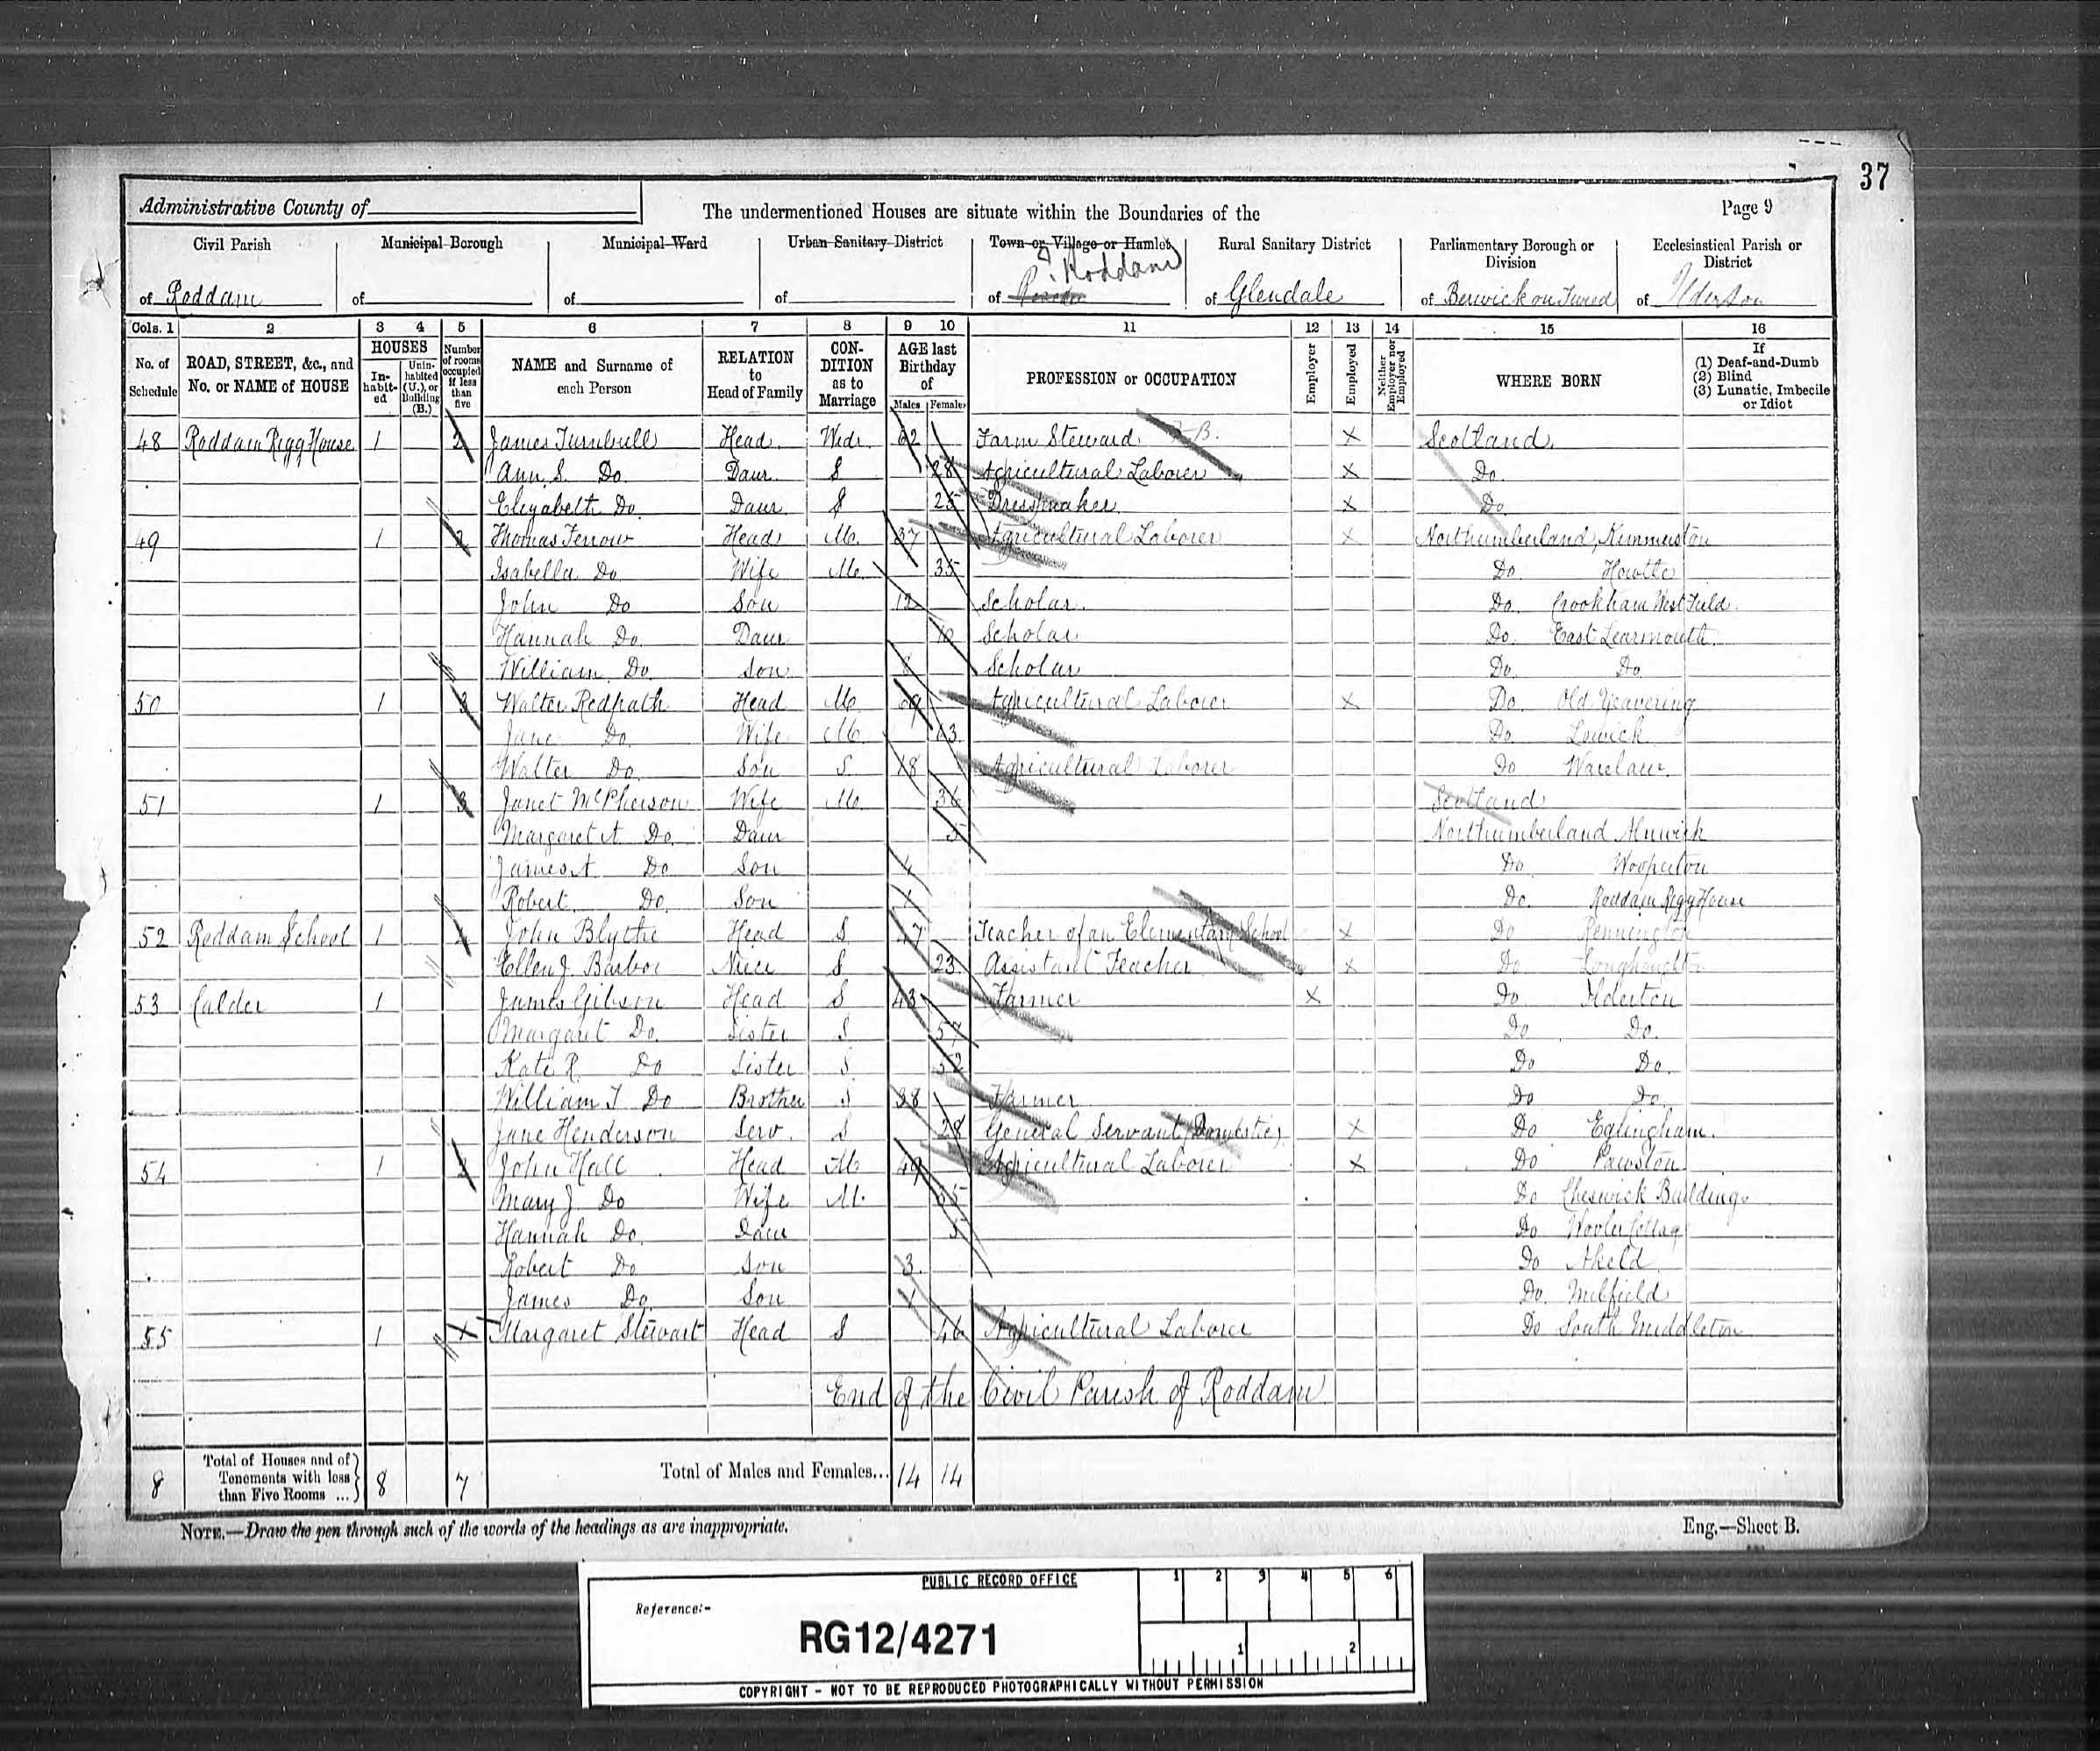 37
Administrative County of
The undermentioned Houses are situate within the Boundaries of the
Page 9
Civil Parish
of Roddam
Municipal Borough
of
Municipal Ward
of
Urban Sanitary District
of
Town or Village or Hamlet
of Roddam
Rural Sanitary District
of Glendale
Parliamentary Borough or Division
of Berwick on Tweed
Ecclesiastical Parish or District
of Ilderton
Cols. 1 2 3 4 5 6 7 8 9 10 11 12 13 14 15 16
No. of Schedule
ROAD, STREET, &c., and No. or NAME of HOUSE
HOUSES
In-habit-ed
Unin-habited (U.), or Building (B.)
Number of rooms occupied if less than five
NAME and Surname of each Person
RELATION to Head of Family
CON-DITION as to Marriage
AGE last Birthday of
Males Females
PROFESSION or OCCUPATION
Employer
Employed
Neither Employer nor Employed
WHERE BORN
If
(1) Deaf-and-Dumb
(2) Blind
(3) Lunatic, Imbecile or Idiot
48 Roddam Rigg House 1 2 James Turnbull Head Widr. 62 Farm Steward X Scotland
Ann S. Do Daur. S 28 Agricultural Laborer X Do.
Elizabeth Do. Daur. S 25 Dressmaker X Do.
49 1 2 Thomas Head M. 37 Agricultural Laborer X Northumberland, Kimmerston
Isabella Do Wife M. 35 Do. Howtle
John Do Son 12 Scholar. Do. Crookham West Field.
Hannah Do. Daur 10 Scholar Do. East Learmouth.
William. Do. Son Scholar Do. Do.
50 1 3 Walter Redpath Head M. 69 Agricultural Laborer X Do. Old Yeavering
Jane Do. Wife M. 63 Do. Lowick
Walter Do. Son S. 18 Agricultural Laborer Do Warelaw.
51 1 3 Janet McPherson Wife M. 36 Scotland
Margaret A Do. Daur 5 Northumberland Alnwick
James A Do Son 4 Do. Wooperton
Robert. Do. Son 1 Do. Roddam Rigg House
52 Roddam School 1 John Blythe Head S 47 Teacher of an Elementary School X Do Rennington
Ellen J. Niece S 23 Assistant Teacher X Do Longhoughton
53 Calder 1 James Gibson Head S 43 Farmer X Do Ilderton
Margaret Do. Sister S 57 Do Do.
Kate R. Do Sister S 52 Do Do.
William T Do Brother S 38 Farmer Do Do.
Jane Henderson Serv. S 28 General Servant (Domestic) X Do Eglingham.
54 1 John Hall Head M 49 Agricultural Laborer X Do Pawston
Mary J. Do Wife M. 35 Do Cheswick Buildings
Hannah Do. Daur 5 Do Wooler Cottage
Robert Do Son 3. Do Akeld
James Do. Son 1 Do. Milfield
55 1 Margaret Stewart Head S 46 Agricultural Laborer Do South Middleton
End of the Civil Parish of Roddam
8 Total of Houses and of Tenements with less than Five Rooms ... 8 7 Total of Males and Females... 14 14
NOTE.—Draw the pen through such of the words of the headings as are inappropriate.
Eng.—Sheet B.
PUBLIC RECORD OFFICE
Reference:-
RG12/4271
1 2 3 4 5 6
1 2
COPYRIGHT - NOT TO BE REPRODUCED PHOTOGRAPHICALLY WITHOUT PERMISSION